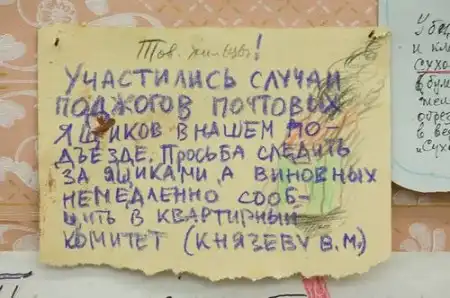 Тов. жильцы!
УЧАСТИЛИСЬ СЛУЧАИ
ПОДЖОГОВ ПОЧТОВЫХ
ЯЩИКОВ В НАШЕМ ПО-
ДЪЕЗДЕ. ПРОСЬБА СЛЕДИТЬ
ЗА ЯЩИКАМИ, А ВИНОВНЫХ
НЕМЕДЛЕННО СООБ-
ЩИТЬ В КВАРТИРНЫЙ
КОМИТЕТ (КНЯЗЕВУ В.М.)
и кл
сухо
в бум